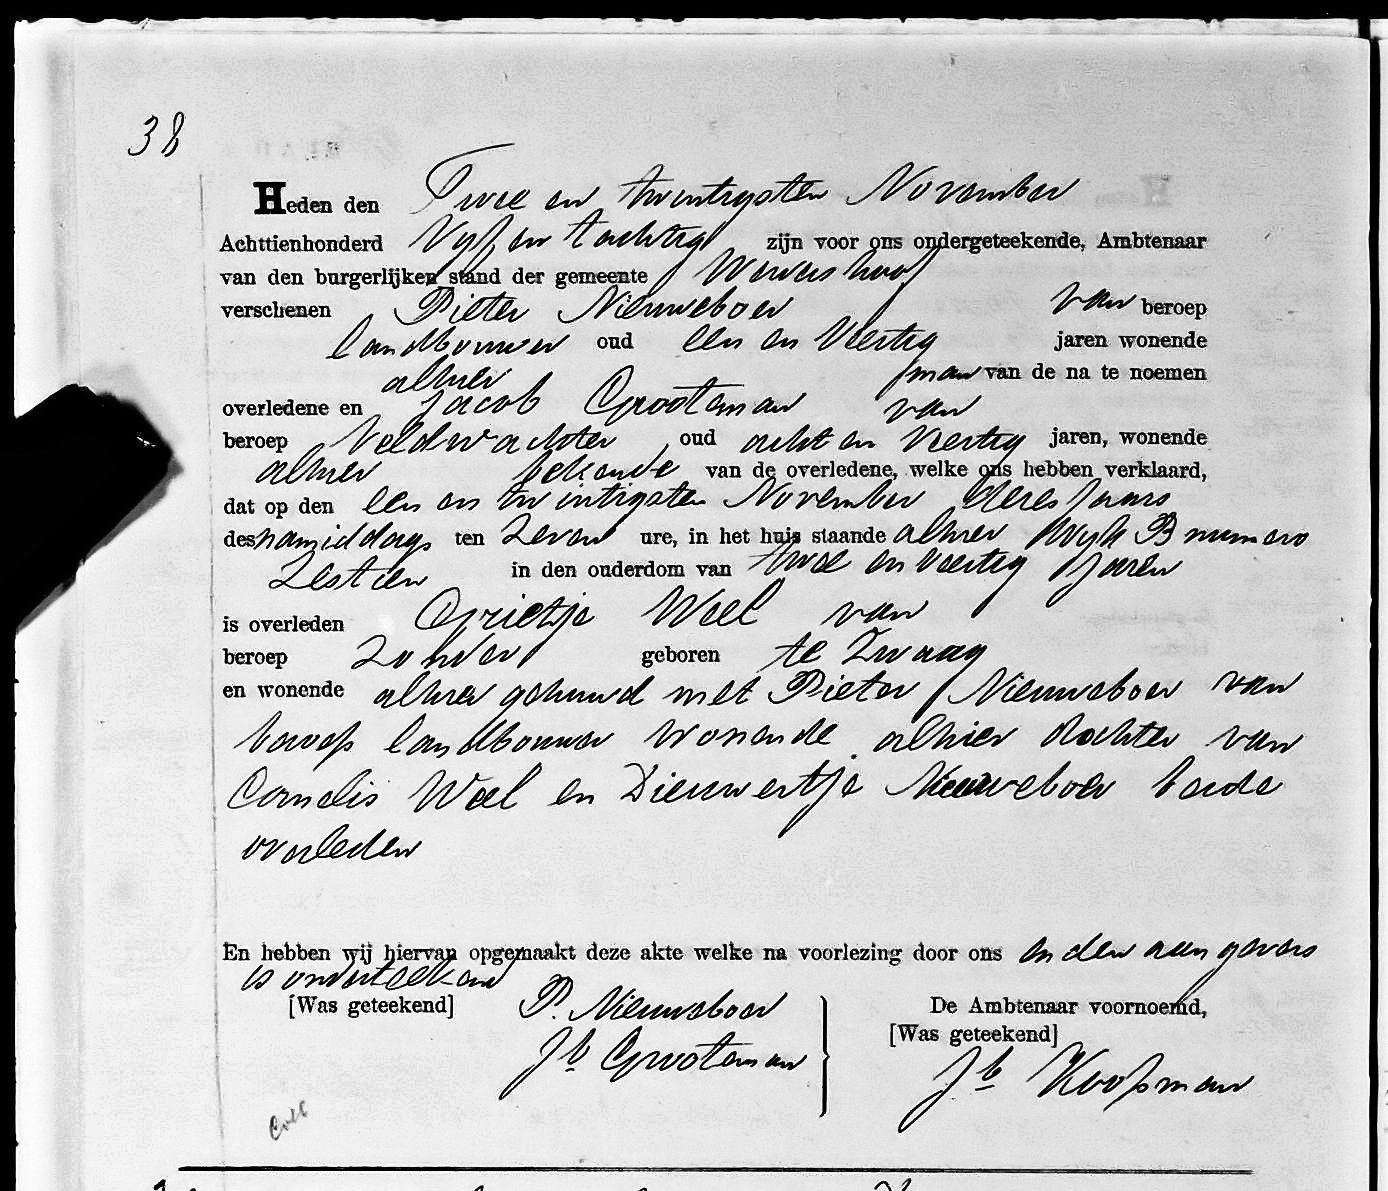 38
Heden den Twee en twintigsten November
Achttienhonderd Vijf en tachtig zijn voor ons ondergeteekende, Ambtenaar
van den burgerlijken stand der gemeente Wervershoof
verschenen Pieter Nieuweboer van beroep
landbouwer oud een en Veertig jaren wonende
alhier man van de na te noemen
overledene en Jacob Grooteman van
beroep Veldwachter oud acht en Veertig jaren, wonende
alhier bekende van de overledene, welke ons hebben verklaard,
dat op den een en twintigsten November dezes jaars
des namiddags ten Zeven ure, in het huis staande alhier Wijk B numero
Zestien in den ouderdom van twee en veertig Jaren
is overleden Grietje Weel van
beroep Zonder geboren te Zwaag
en wonende alhier gehuwd met Pieter Nieuweboer van
beroep landbouwer wonende alhier dochter van
Cornelis Weel en Dieuwertje Nieuweboer beide
overleden
En hebben wij hiervan opgemaakt deze akte welke na voorlezing door ons en den aangevers
is onderteekend
[Was geteekend] P. Nieuweboer De Ambtenaar voornoemd,
[Was geteekend]
Jb Grooteman Jb Koopman
Coll